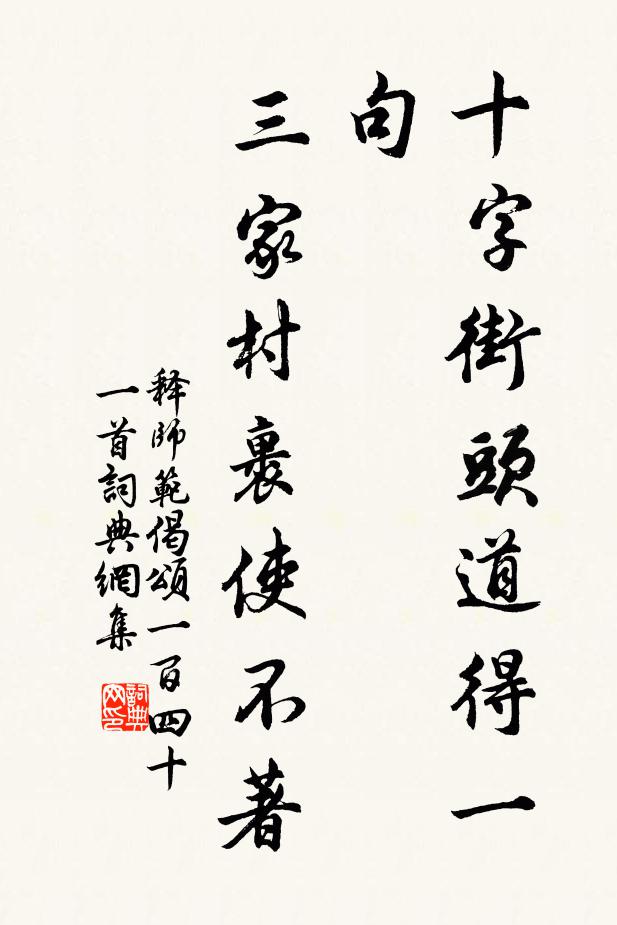 十字街頭道得一
句
三家村裏使不著
释師範偈頌一百四十
一首詞典網集
詞典
网印